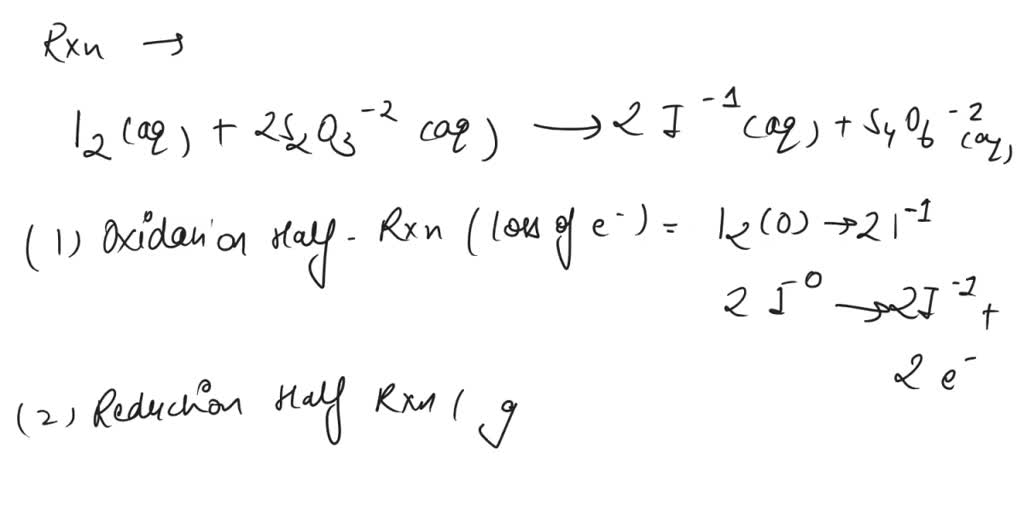 Rxn →
I2 (aq) + 2S2O3^-2 (aq) → 2 I^-1 (aq) + S4O6^-2 (aq)
(1) Oxidation Half - Rxn (loss of e^-) = I2 (0) → 2 I^-1
2 I^0 → 2I^-1 +
2 e^-
(2) Reduction Half Rxn ( g